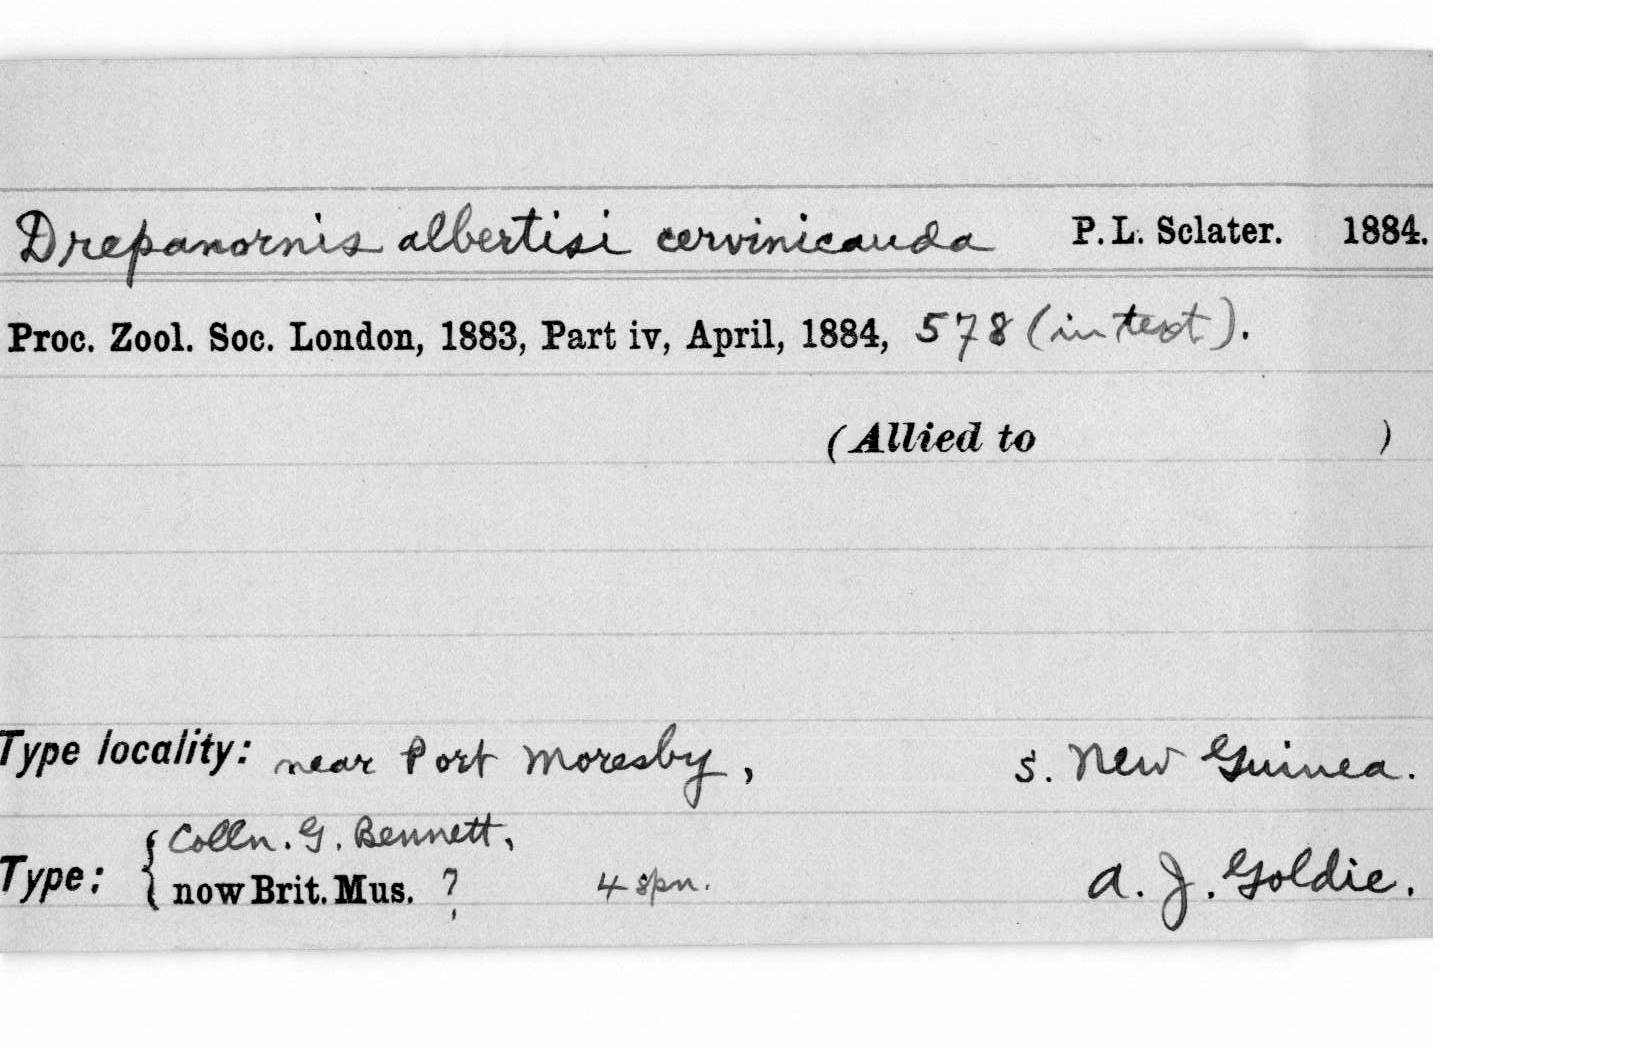 Drepanornis albertisi cervinicauda P. L. Sclater. 1884.
Proc. Zool. Soc. London, 1883, Part iv, April, 1884, 578 (in text).
(Allied to )
Type locality: near Port Moresby, S. New Guinea.
Colln. G. Bennett,
Type: { now Brit. Mus. ? 4 spn. A. J. Goldie.